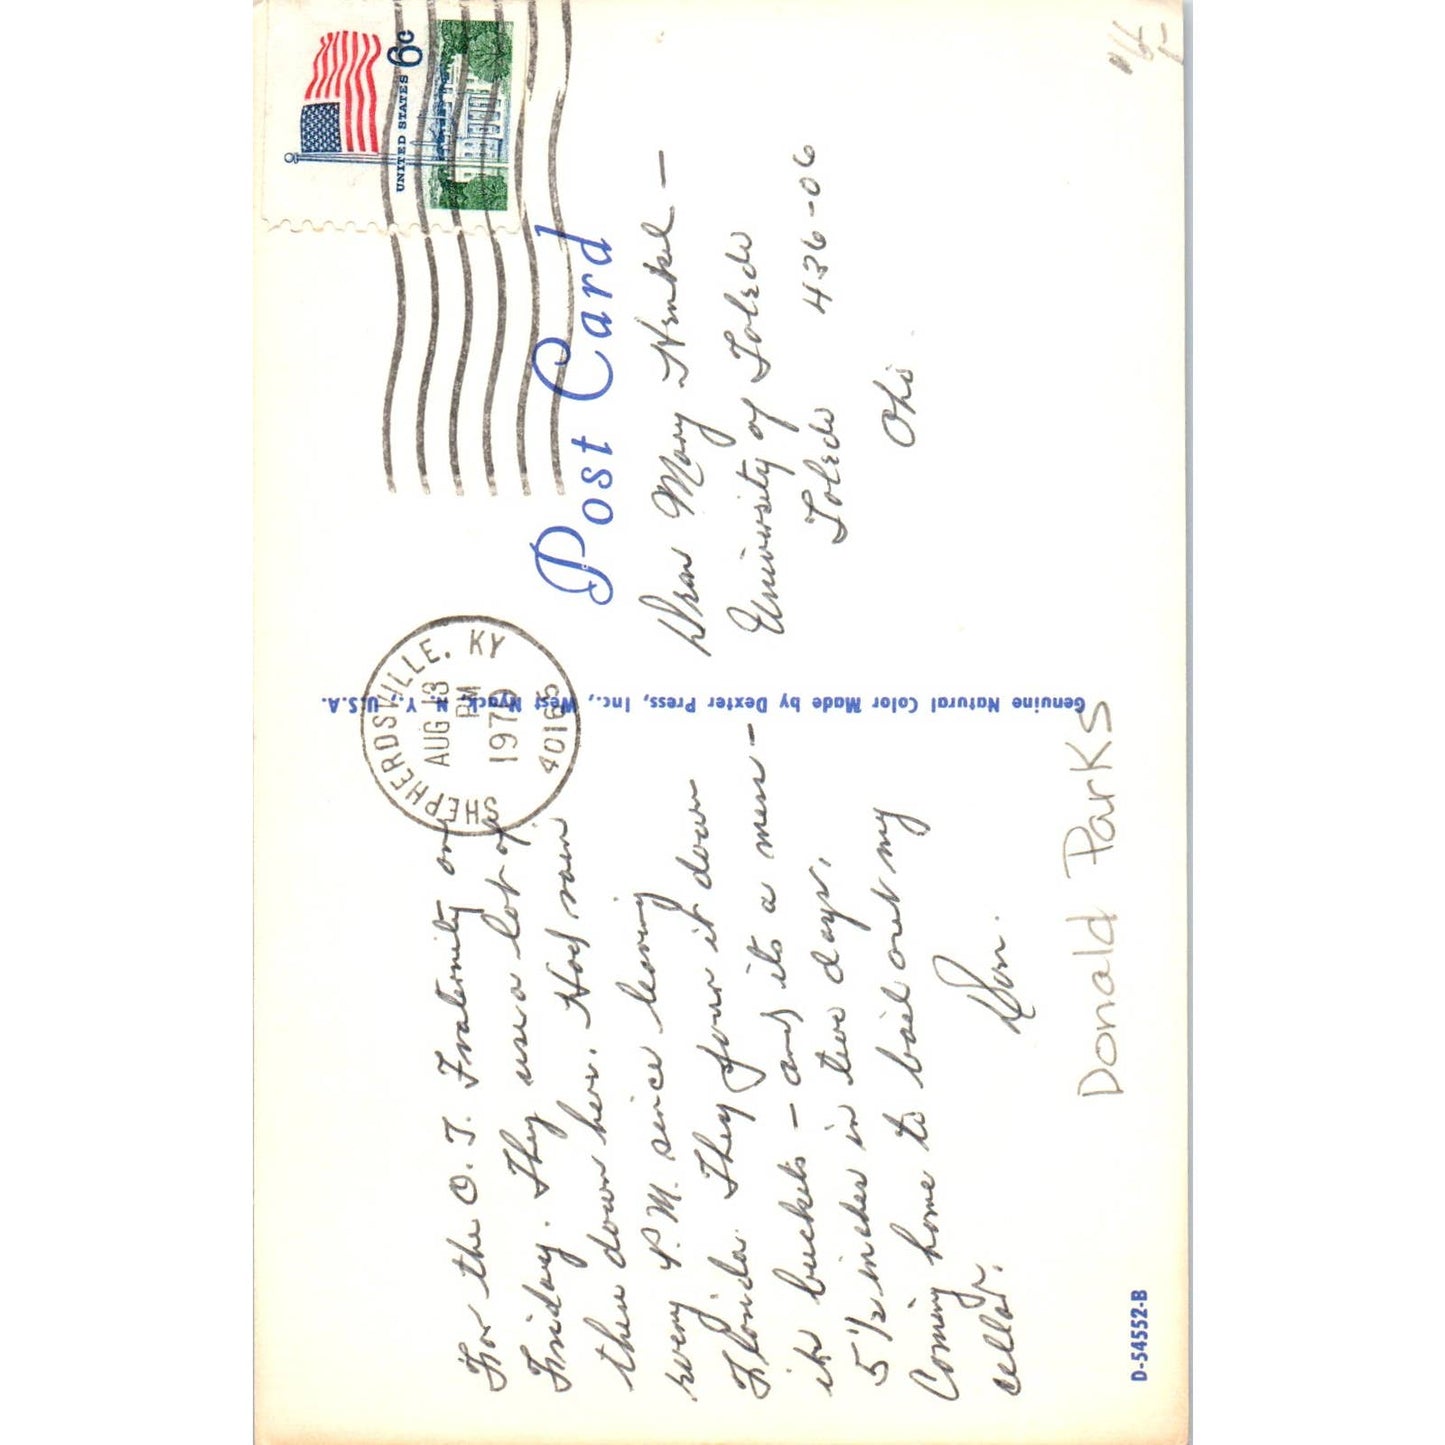 For the O. T. Fraternity on
Friday. They use a lot of
these down here. Had rain
every P.M. since leaving
Florida. They pour it down
in buckets - and its a mess -
5 1/2 inches in two days.
Coming home to bail out my
cellar.
Don.
Donald Parks
D-54552-B
Genuine Natural Color Made by Dexter Press, Inc., West Nyack, N. Y., U.S.A.
SHEPHERDSVILLE, KY
AUG 13
PM
1970
40165
UNITED STATES 6c
Post Card
Dean Mary Henkel -
University of Toledo
Toledo 436-06
Ohio.